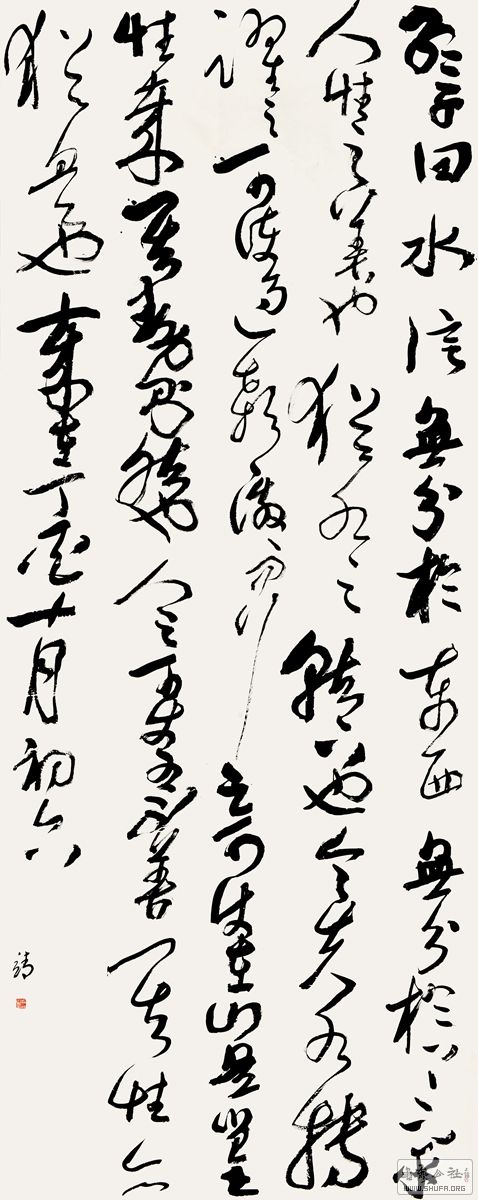 孟子曰水信無分於東西無分於上下乎
人性之善也猶水之就下也今夫水搏
躍之可使過顙激而行之可使在山是豈
性哉其勢則然也人之可使為不善其性亦
猶是也 在丁亥十月初六
靖
書法公社
WWW.SHUFA.ORG